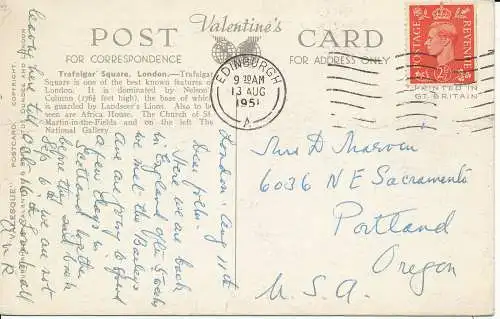 POST
Valentine's
CARD
FOR CORRESPONDENCE
FOR ADDRESS ONLY
Trafalgar Square, London.—Trafalgar
Square is one of the best known features of
London. It is dominated by Nelson's
Column (176¼ feet high), the base of which
is guarded by Landseer's Lions. Also to be
seen are Africa House, The Church of St.
Martin-in-the-Fields and on the left The
National Gallery
EDINBURGH
9 30 AM
13 AUG
1951
A
POSTAGE
REVENUE
PRINTED IN
GT. BRITAIN
London - Aug 11th
Dear folks -
Here we are back
in England after 5 weeks
we met the
are going to spend
a few days in
Scotland together
before they sail back
6'th & we are not
leaving here till
Mrs D
6036 N E Sacramento
Portland
Oregon
U. S. A.
POSTCARD
COPYRIGHT